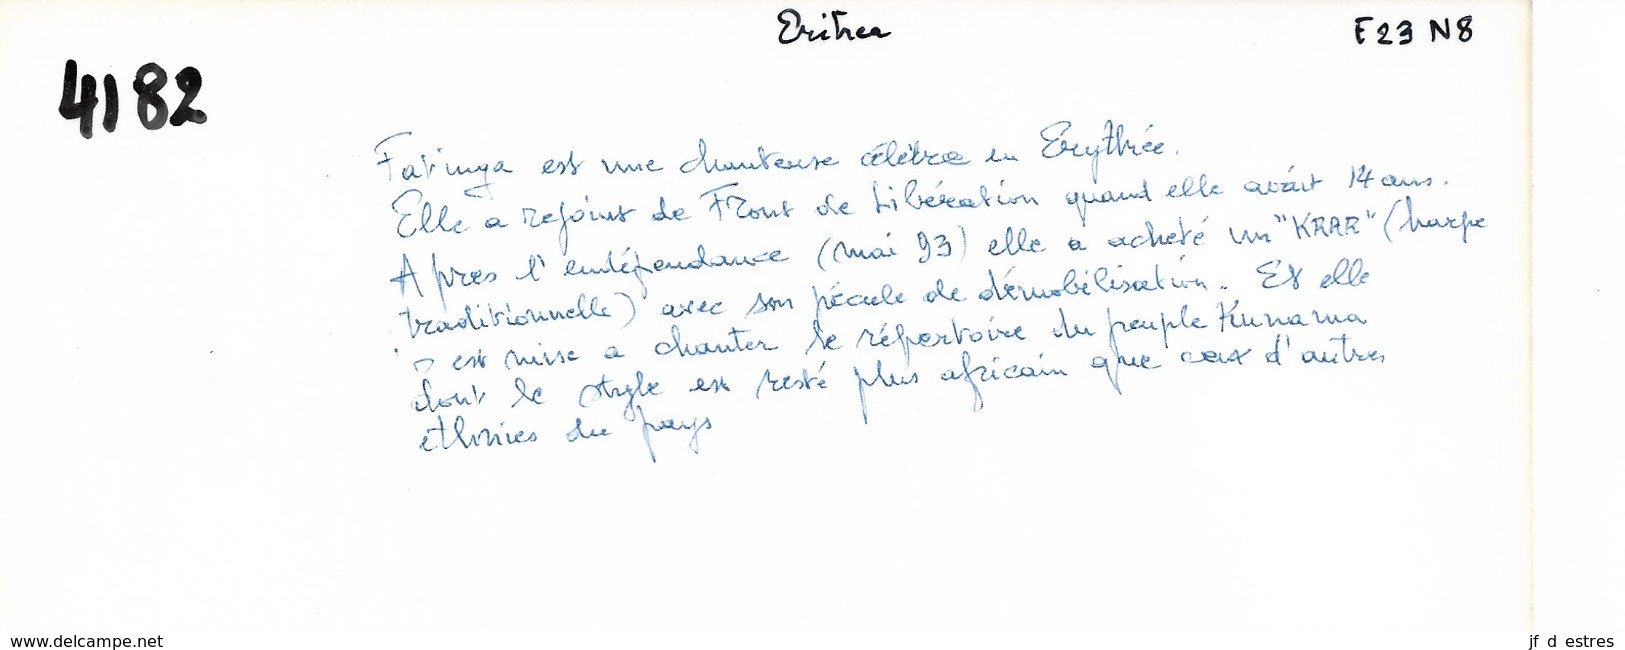 Eritrea
F23 N8
4182
Fatinga est une chanteuse célèbre en Érythrée.
Elle a rejoint de Front de Libération quand elle avait 14 ans.
Apres l'endépendance (mai 93) elle a acheté un "KRAR" (harpe
traditionnelle) avec son pécule de démobélisation. Et elle
s'est mise a chanter le répertoire du peuple Kunama
dont le style est resté plus africain que ceux d'autres
éthnies du pays
www.delcampe.net
jf d estres